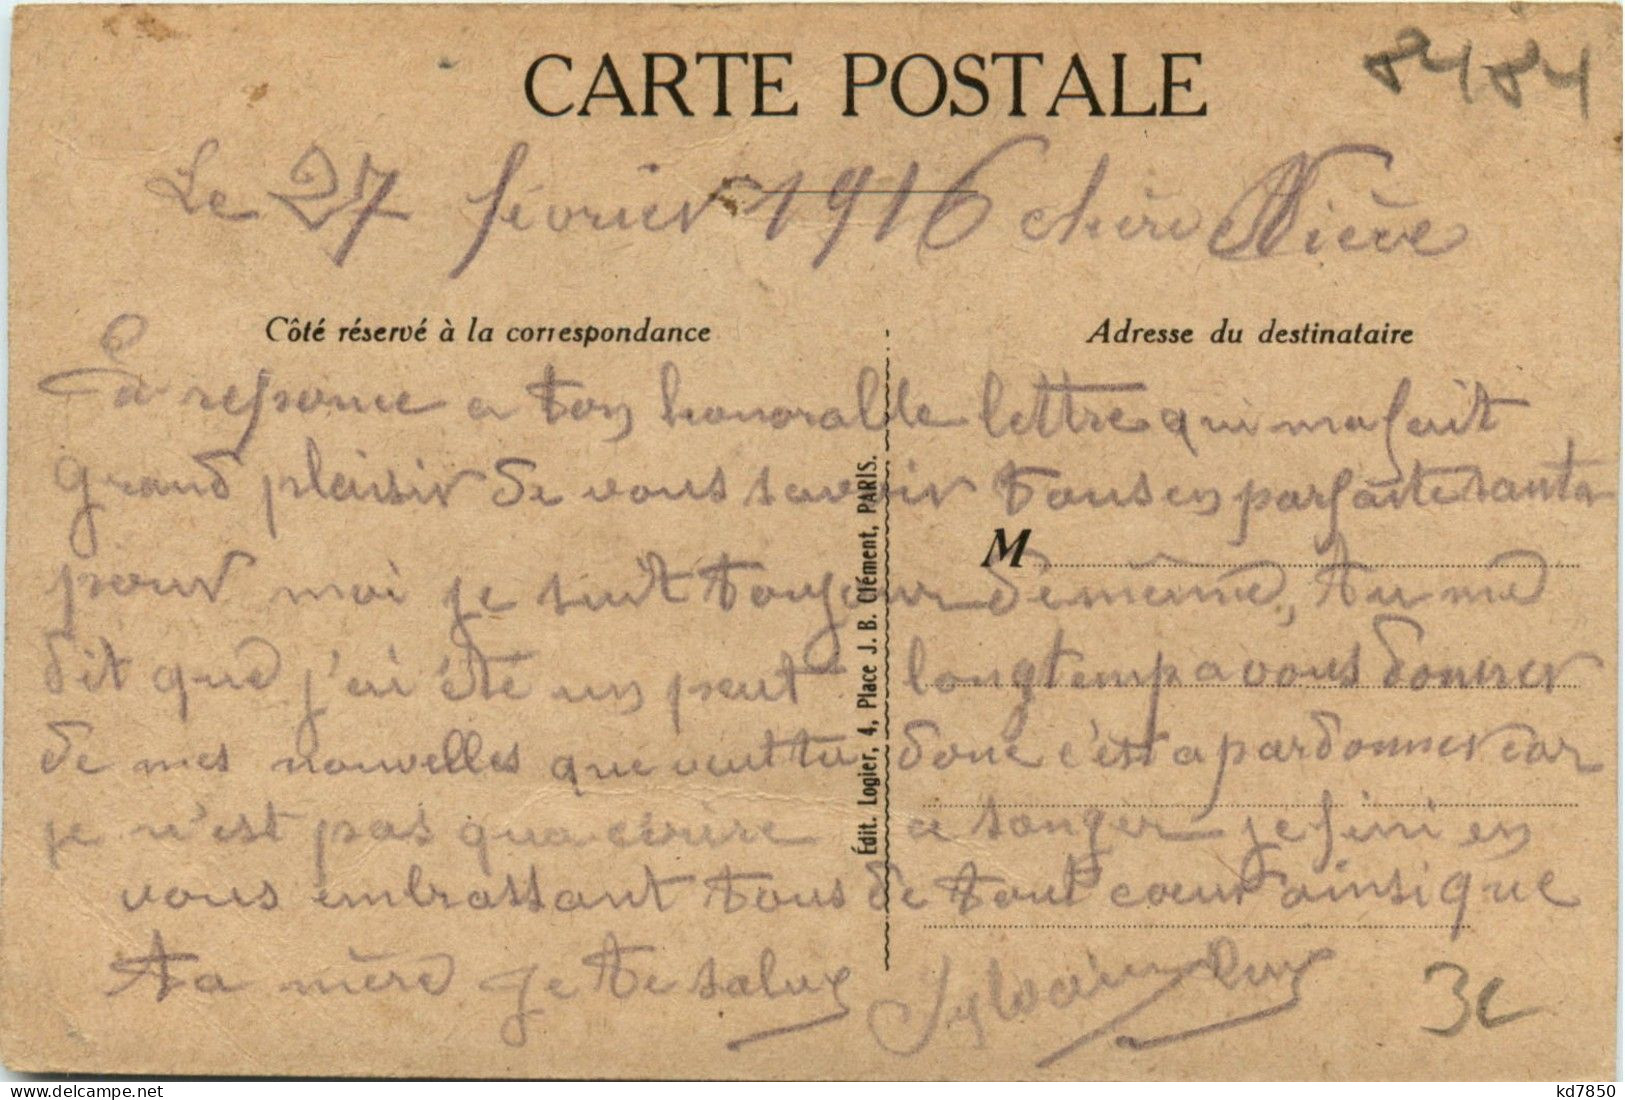 CARTE POSTALE
8484
Le 27 février 1916 chère Nièce
Côté réservé à la correspondance
Adresse du destinataire
La reponce a ton honoralle lettre qui ma fait
grand plaisir de vous savoir tous en parfaite santé
M
pour moi je suit toujour de même, tu me
dit que j'ai été un peut longtemp a vous donner
de mes nouvelles que veut tu donc c'est a pardonner car
je n'est pas qua écrire a songer je fini en
vous embrassant tous de tout cœur ainsi que
ta mère je te salue Sylvain
Édit. Logier, 4, Place J. B. Clément, PARIS.
3c
kd7850